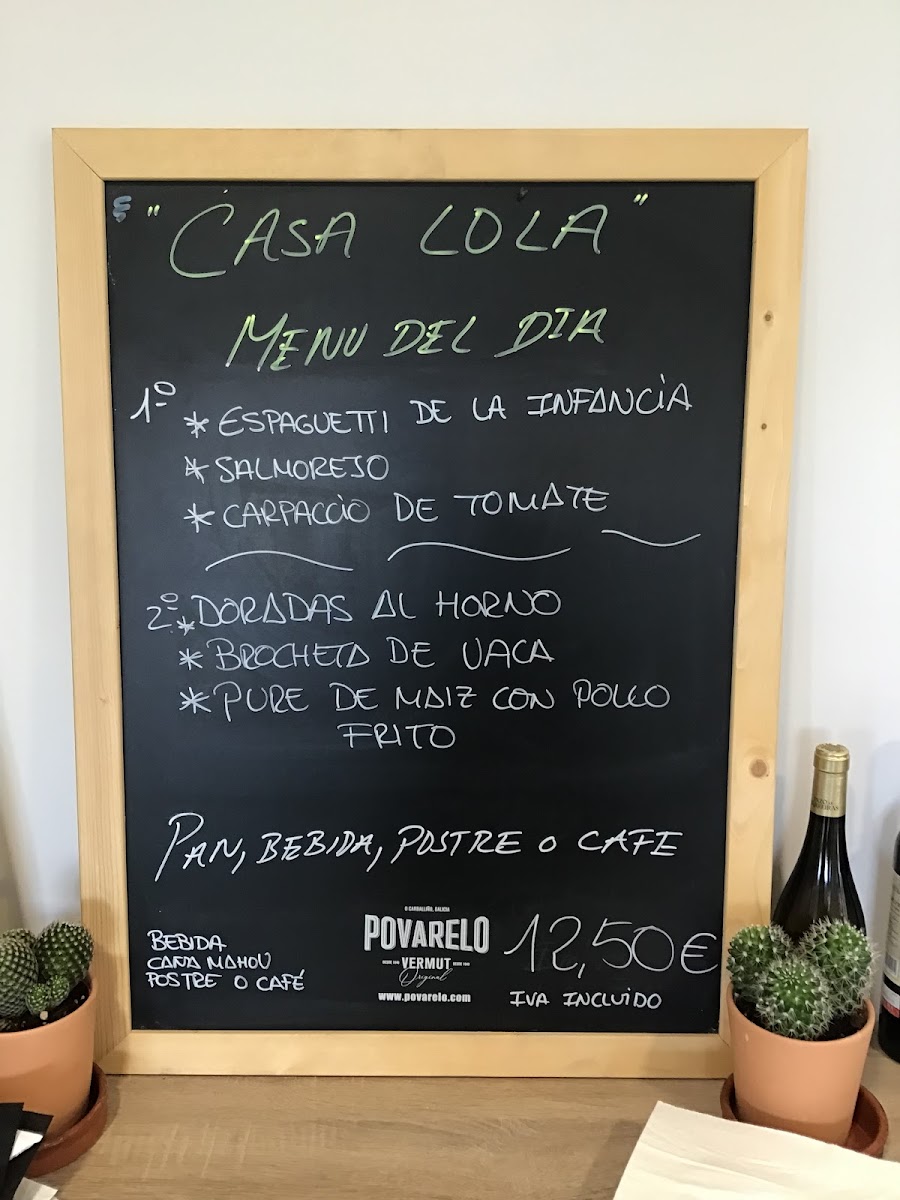 "CASA LOLA"
MENU DEL DIA
1º
* ESPAGUETTI DE LA INFANCIA
* SALMOREJO
* CARPACCIO DE TOMATE
2º
* DORADAS AL HORNO
* BROCHETA DE VACA
* PURE DE MAIZ CON POLLO
FRITO
PAN, BEBIDA, POSTRE O CAFE
BEBIDA
CAÑA MAHOU
POSTRE O CAFÉ
O CARBALLIÑO, GALICIA
POVARELO
DESDE 1940 VERMUT DESDE 1940
Original
www.povarelo.com
12,50€
IVA INCLUIDO